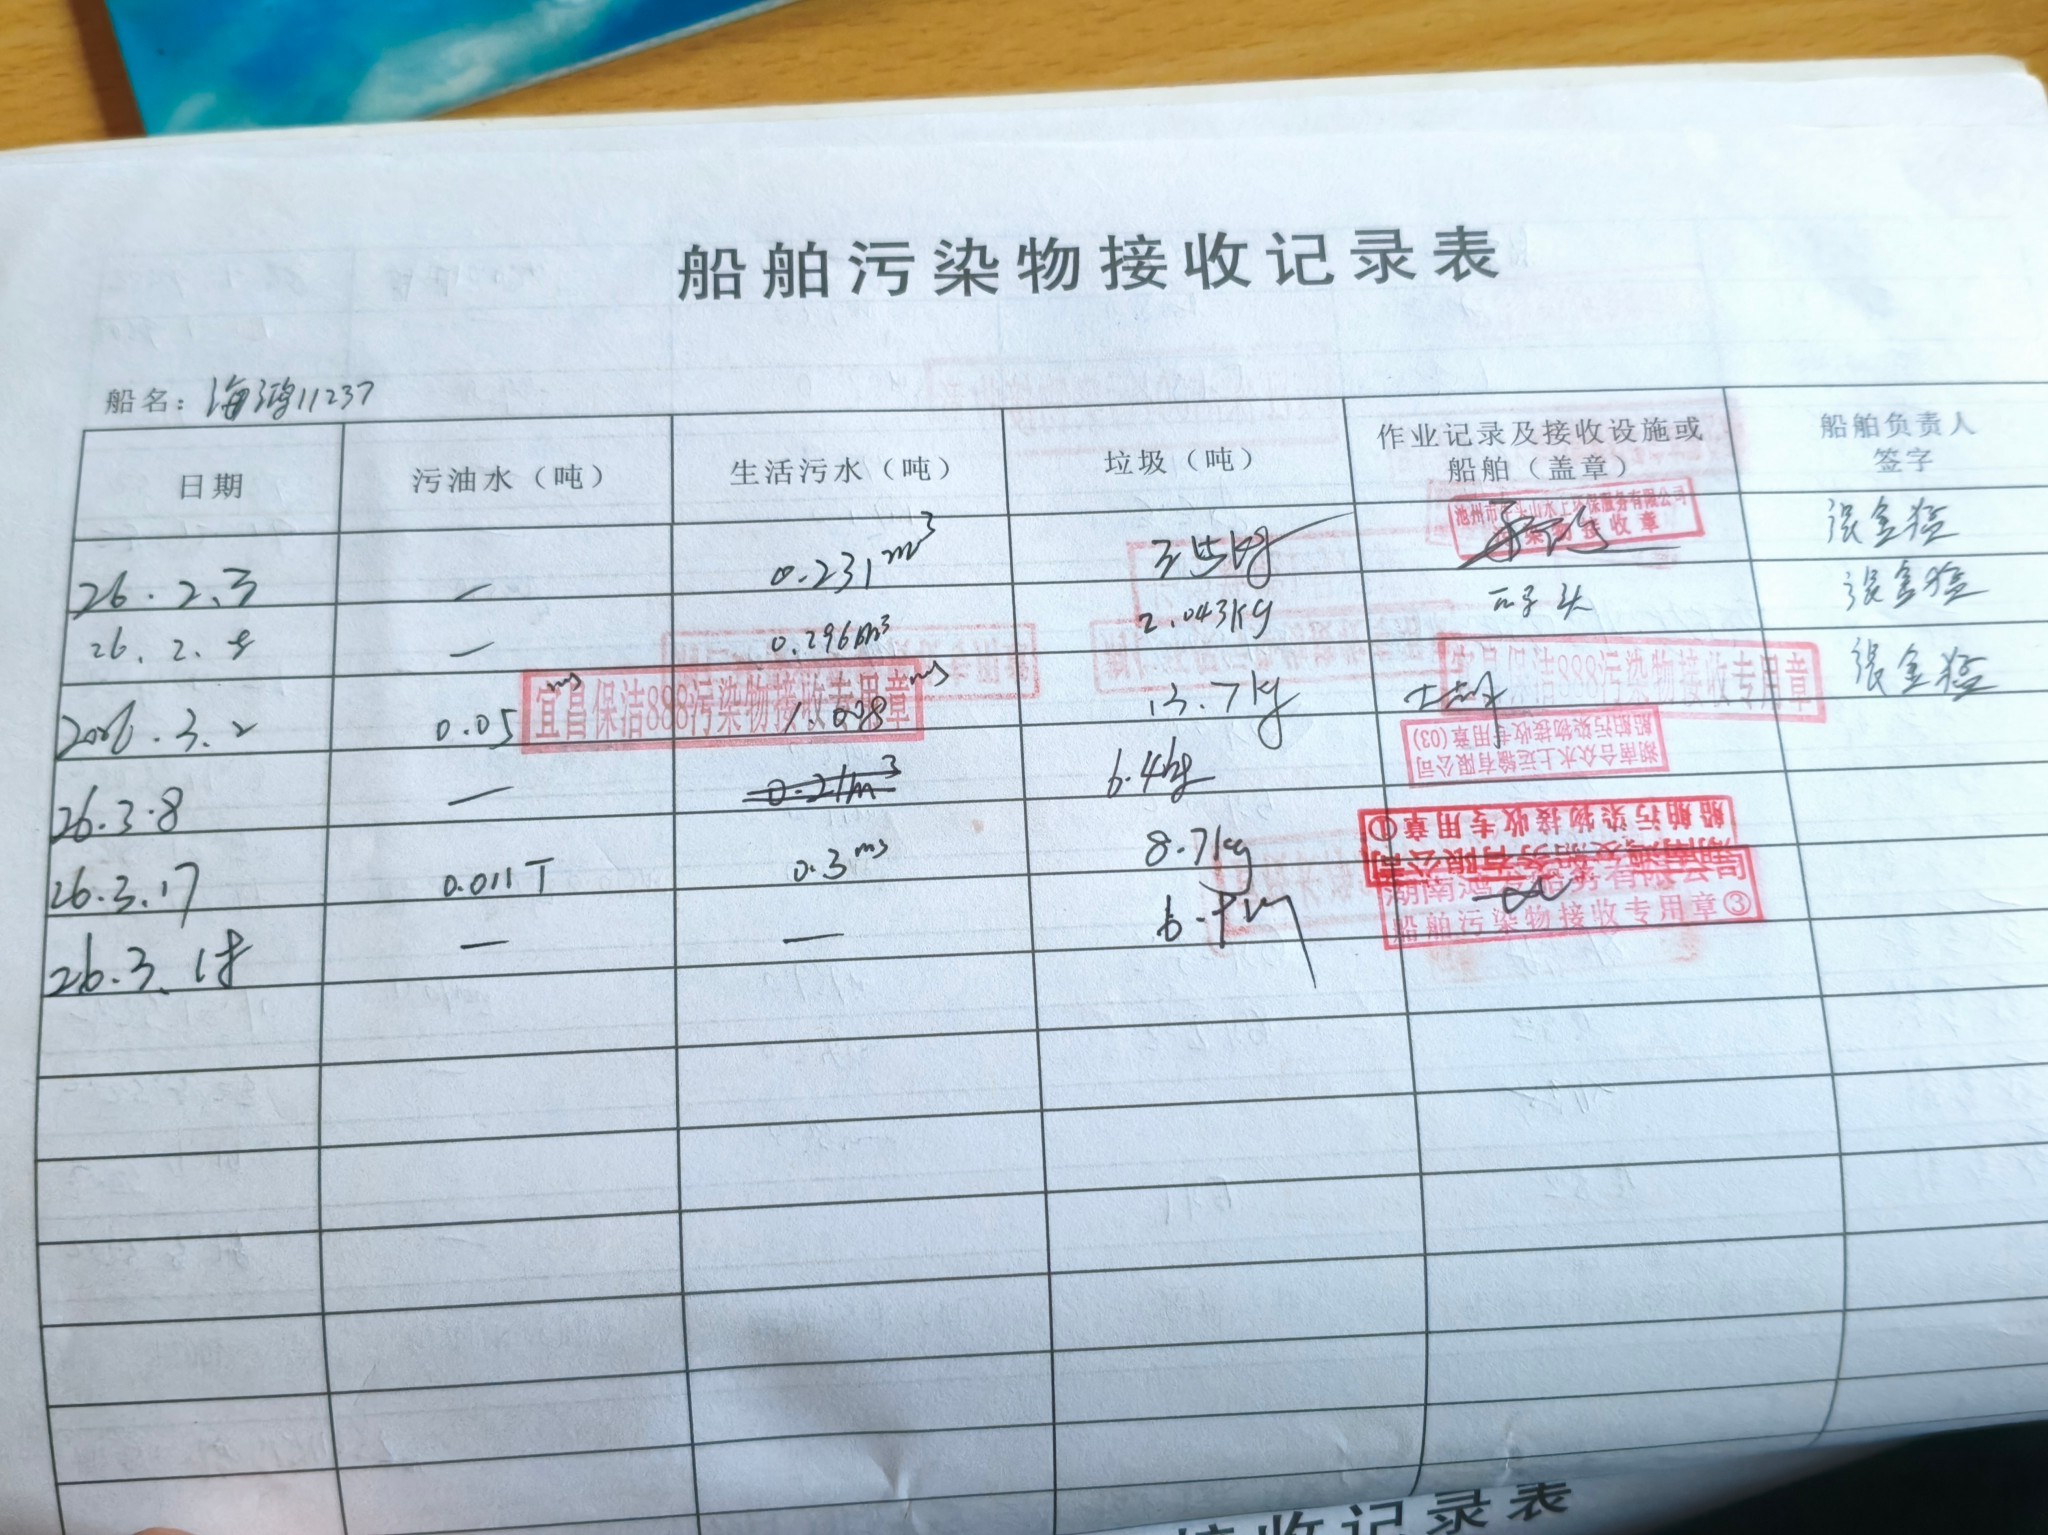 船舶污染物接收记录表
船名：海鸿11237
日期 污油水（吨） 生活污水（吨） 垃圾（吨） 作业记录及接收设施或船舶（盖章） 船舶负责人签字
26.2.3 — 0.231m³ 池州市牛头山水上环保服务有限公司 接收章 张金猛
26.2. — 0.296m³ 2.043kg 张金猛
2026.3.2 0.05 m3 宜昌保洁888污染物接收专用章 1.028 m3 13.7kg 宜昌保洁888污染物接收专用章 张金猛
26.3.8 — 0.21m³ 6.4kg 湖南合众水上运输有限公司 船舶污染物接收专用章(03)
26.3.17 0.011T 0.3m3 8.7kg 船舶污染物接收专用章①
26.3.18 — — 湖南鸿 船务有限公司 船舶污染物接收专用章③
接收记录表